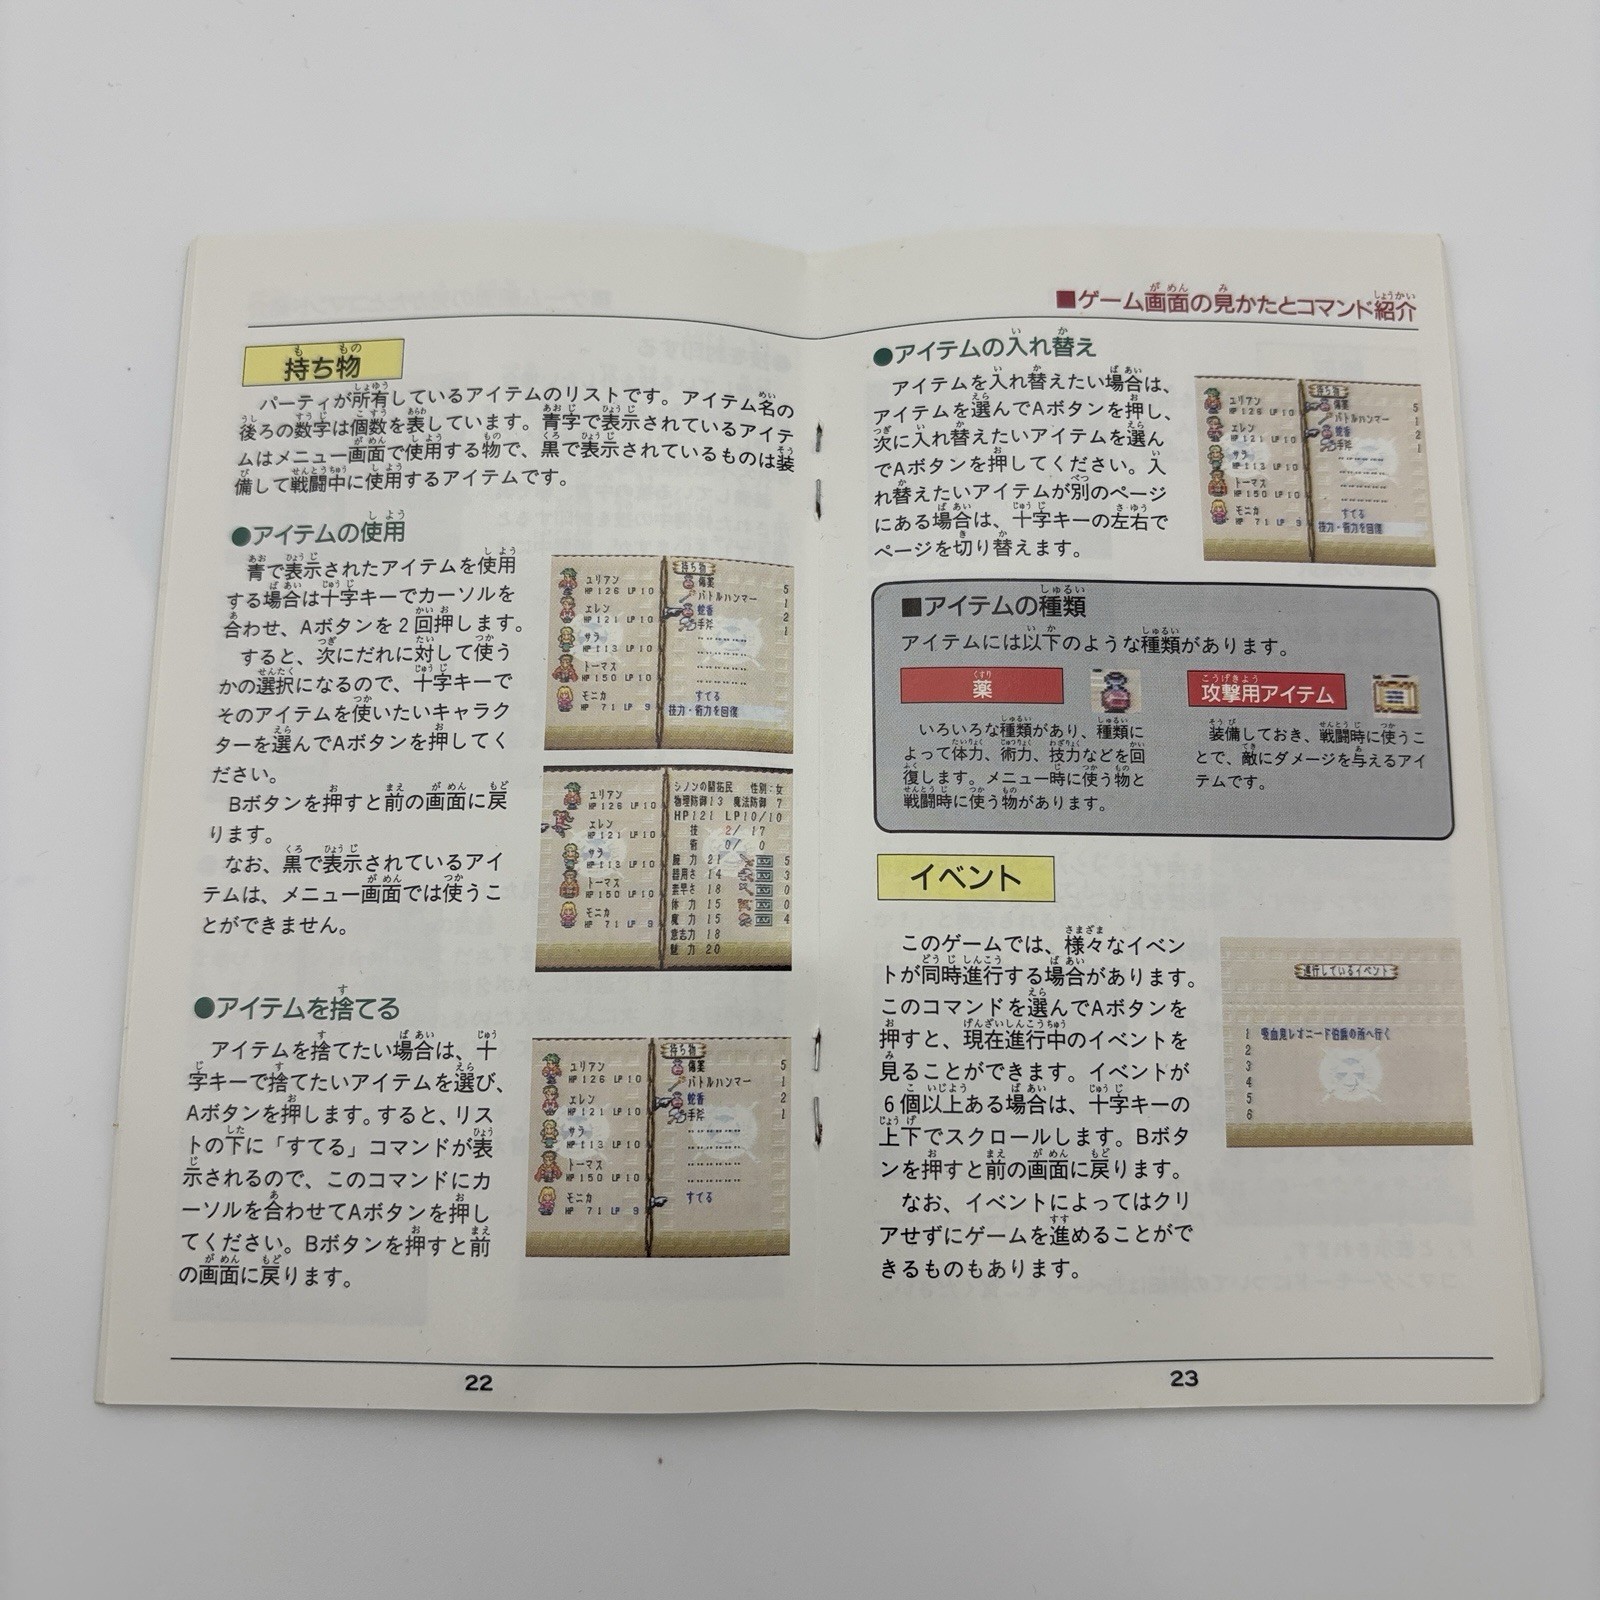 持ち物
パーティが所有しているアイテムのリストです。アイテム名の
後ろの数字は個数を表しています。青字で表示されているアイテ
ムはメニュー画面で使用する物で、黒で表示されているものは装
備して戦闘中に使用するアイテムです。
●アイテムの使用
青で表示されたアイテムを使用
する場合は十字キーでカーソルを
合わせ、Aボタンを2回押します。
すると、次にだれに対して使う
かの選択になるので、十字キーで
そのアイテムを使いたいキャラク
ターを選んでAボタンを押してく
ださい。
Bボタンを押すと前の画面に戻
ります。
なお、黒で表示されているアイ
テムは、メニュー画面では使うこ
とができません。
ユリアン
HP 126 LP 10
エレン
HP 121 LP 10
サラ
HP 113 LP 10
トーマス
HP 150 LP 10
モニカ
HP 71 LP 9
持ち物
傷薬 5
バトルハンマー 1
蛇香 2
手斧 1
すてる
技力・術力を回復
ユリアン
HP 126 LP 10
エレン
HP 121 LP 10
サラ
HP 113 LP 10
トーマス
HP 150 LP 10
モニカ
HP 71 LP 9
シノンの開拓民 性別:女
物理防御13 魔法防御 7
HP121 LP10/10
技 2/ 17
術 0/ 0
腕力 21 5
器用さ 14 3
素早さ 18 0
体力 15 0
魔力 15 4
意志力 18
魅力 20
●アイテムを捨てる
アイテムを捨てたい場合は、十
字キーで捨てたいアイテムを選び、
Aボタンを押します。すると、リス
トの下に「すてる」コマンドが表
示されるので、このコマンドにカ
ーソルを合わせてAボタンを押し
てください。Bボタンを押すと前
の画面に戻ります。
ユリアン
HP 126 LP 10
エレン
HP 121 LP 10
サラ
HP 113 LP 10
トーマス
HP 150 LP 10
モニカ
HP 71 LP 9
持ち物
傷薬 5
バトルハンマー 1
蛇香 2
手斧 1
すてる
22
■ゲーム画面の見かたとコマンド紹介
●アイテムの入れ替え
アイテムを入れ替えたい場合は、
アイテムを選んでAボタンを押し、
次に入れ替えたいアイテムを選ん
でAボタンを押してください。入
れ替えたいアイテムが別のページ
にある場合は、十字キーの左右で
ページを切り替えます。
ユリアン
HP 126 LP 10
エレン
HP 121 LP 10
サラ
HP 113 LP 10
トーマス
HP 150 LP 10
モニカ
HP 71 LP 9
持ち物
傷薬 5
バトルハンマー 1
蛇香 2
手斧 1
すてる
技力・術力を回復
■アイテムの種類
アイテムには以下のような種類があります。
薬
いろいろな種類があり、種類に
よって体力、術力、技力などを回
復します。メニュー時に使う物と
戦闘時に使う物があります。
攻撃用アイテム
装備しておき、戦闘時に使うこ
とで、敵にダメージを与えるアイ
テムです。
イベント
このゲームでは、様々なイベン
トが同時進行する場合があります。
このコマンドを選んでAボタンを
押すと、現在進行中のイベントを
見ることができます。イベントが
6個以上ある場合は、十字キーの
上下でスクロールします。Bボタ
ンを押すと前の画面に戻ります。
なお、イベントによってはクリ
アせずにゲームを進めることがで
きるものもあります。
進行しているイベント
1 吸血鬼レオニード伯爵の所へ行く
2
3
4
5
6
23